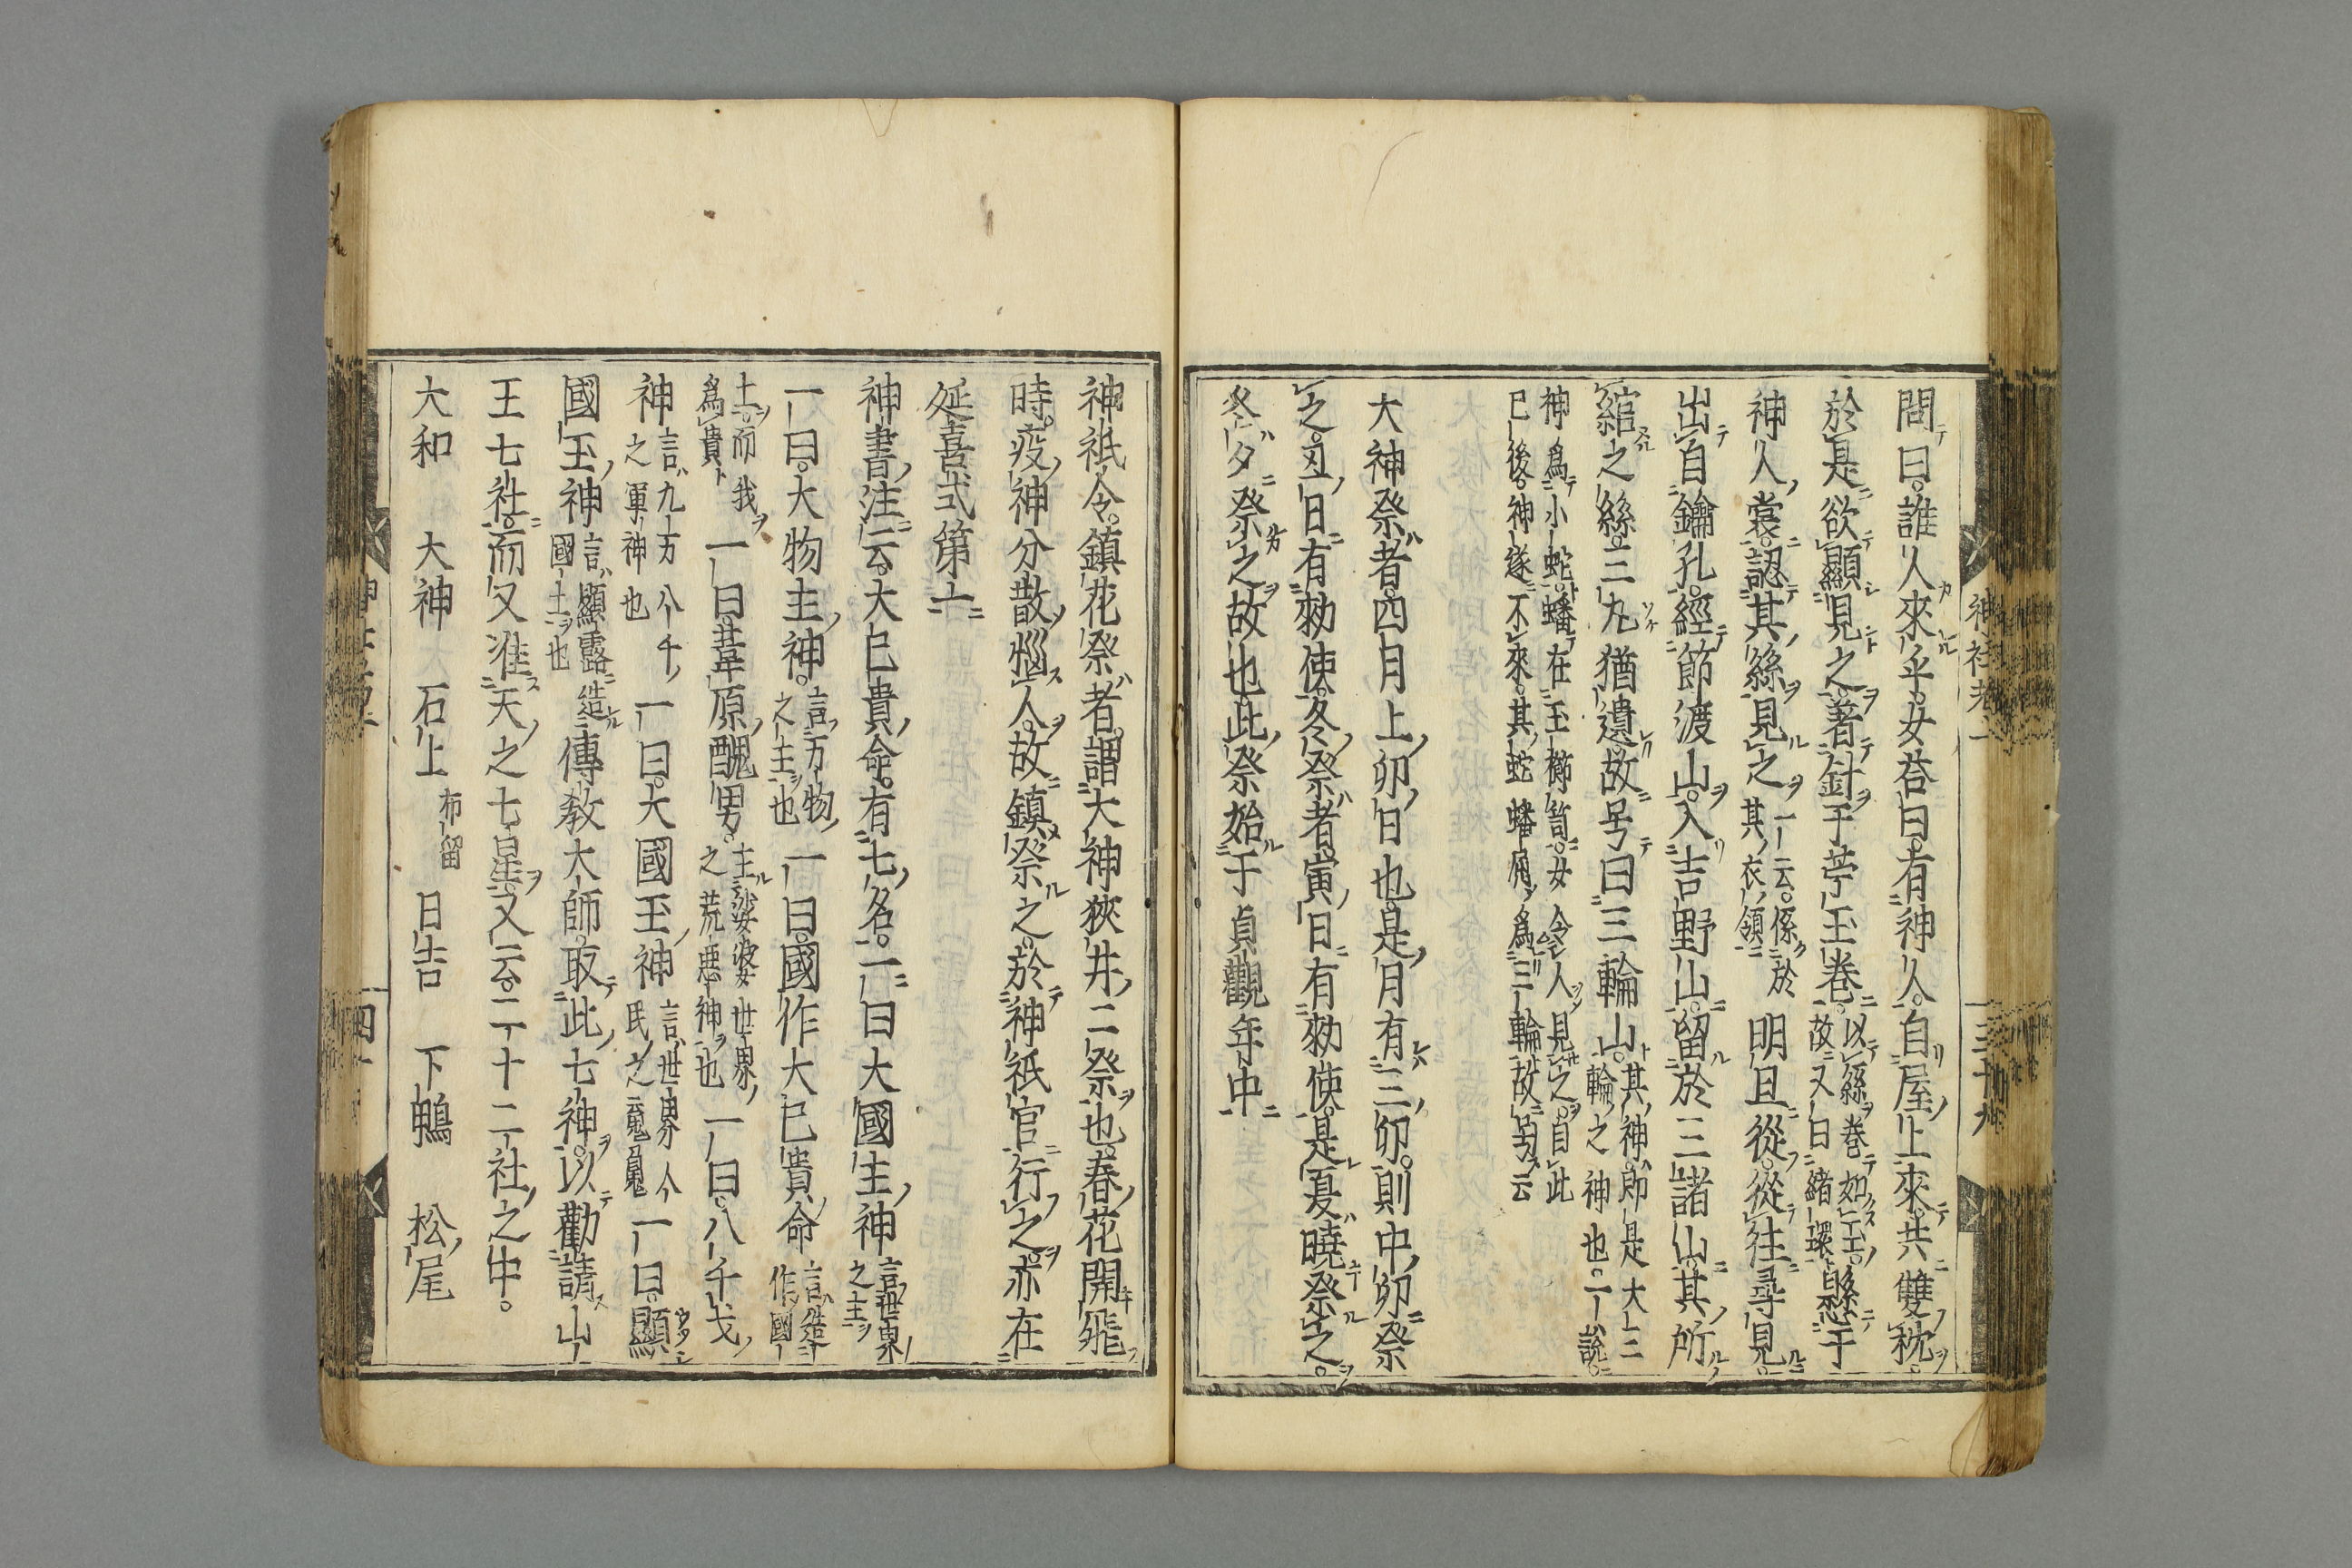 問曰。誰人來乎。女荅曰。有神人。自屋上來。共雙枕。
於是欲顯見之。著針于苧玉巻。以絲巻如玉。懸于
故又曰緒環
神人裳。認其絲見之一云。係於
其衣領明旦從。從往尋見。
出自鑰孔。經節渡山。入吉野山。留於三諸山。其所
綰之絲。三丸猶遺。故号曰三輪山。其神。即是大三
輪之神也。一説。
神爲小蛇。蟠在玉櫛笥。女令人見之。自此
已後。神遂不來。其蛇蟠角爲三輪故号云
大神祭者。四月上卯日也。是月有三卯。則中卯祭
之。丑日有勅使。冬祭者。寅日有勅使。是夏曉祭之。
冬夕祭之故也。此祭始于貞觀年中
神社考二
三十九
神祇令。鎮花祭者。謂大神狹井二祭也。春花開飛
時。疫神分散惱人。故鎮祭之。於神祇官行之。亦在
延喜式第十一
神書注云。大已貴命。有七名。一曰大國主神言世界
之主
一曰。大物主神。言万物
之主也一曰。國作大已貴命言造
作國
土。而我
爲貴一曰。葦原醜男。主娑婆世界
之荒悪神也一曰。八千戈
神言九万八千
之軍神也一曰。大國玉神言世界人
民之䰟魄一曰。顯
國玉神言顯露造
國土也傳教大師。取此七神。以勸請山
王七社。而又准天之七星。又云。二十二社之中。
大和 大神 石上布留 日吉 下鴨 松尾
四十